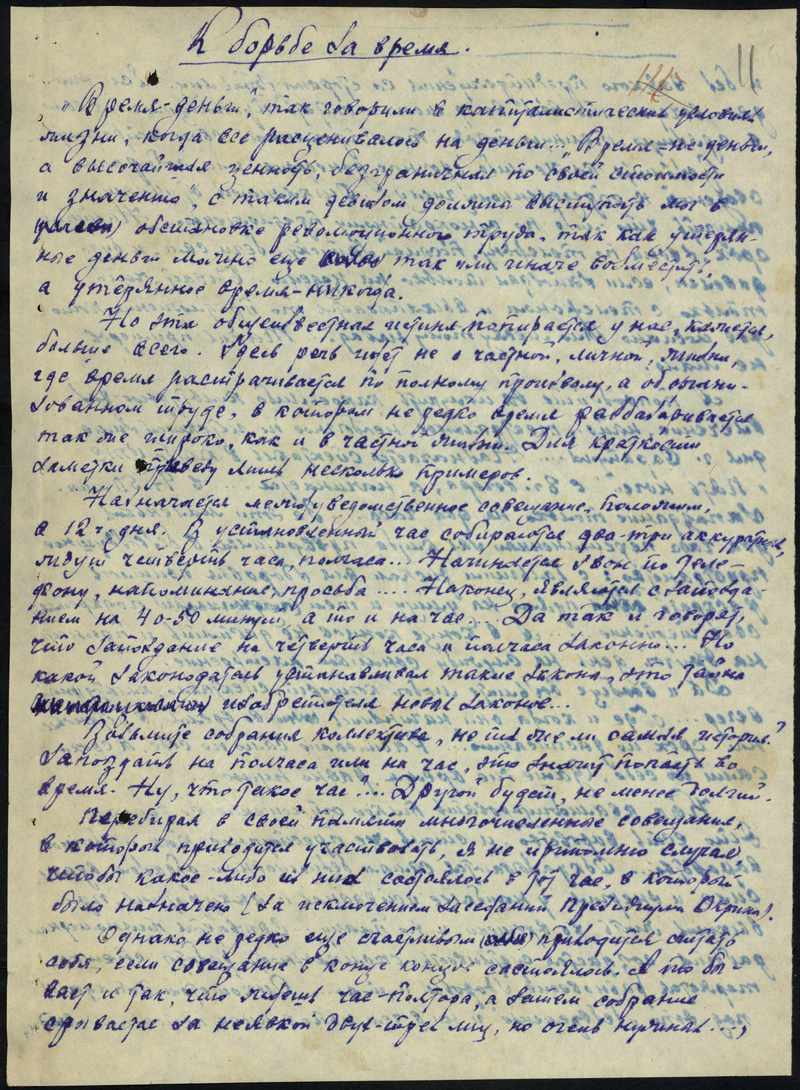 К борьбе за время.
11
„Время-деньги", так говорили в капиталистических условиях
жизни, когда все расценивалось на деньги... „Время-не деньги,
а высочайшая ценность, безграничная по своей стоимости
и значению", с таким девизом должны выступать мы в
обстановке революционного труда, так как утерян-
ные деньги можно еще так или иначе возместить,
а утерянное время-никогда.
Но эта общеизвестная истина попирается у нас, кажется,
больше всего. Здесь речь идет не о частной, личной, жизни,
где время растрачивается по полному произволу, а об органи-
зованном труде, в котором не редко время разбазаривается
так же широко, как и в частной жизни. Для краткости
заметки приведу лишь несколько примеров.
Назначается междуведомственное совещание, положим,
в 12 ч. дня. В установленный час собираются два-три аккуратных,
ждут четверть часа, полчаса... Начинается звон по теле-
фону, напоминание, просьба.... Наконец, являются с запозда-
нием на 40-50 минут, а то и на час... Да так и говорят,
что запоздание на четверть часа и полчаса законно... Но
какой законодатель устанавливал такие закона, это тайна
изобретателя новых законов...
Возьмите собрания коллектива, не та же ли самая история?
Запоздать на полчаса или на час, это значит попасть во
время. Ну, что такое час?... Другой будет, не менее долгий.
Перебирая в своей памяти многочисленные совещания,
в которых приходится участвовать, я не припомню случая,
чтобы какое-либо из них состоялось в тот час, в который
было назначено (за исключением заседаний Президиума Окрика).
Однако не редко еще счастливым приходится считать
себя, если совещание в конце концов состоялось. А то бы-
вает и так, что ждешь час-полтора, а затем собрание
срывается за неявкой двух-трех лиц, но очень нужных...,